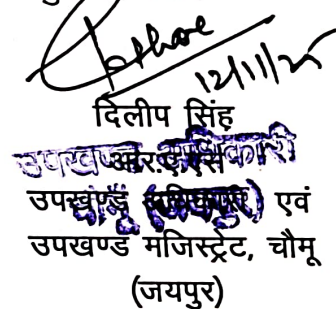 12/11/25
दिलीप सिंह
उपखण्ड अधिकारी
आर.ए.एस
उपखण्ड एवं
उपखण्ड मजिस्ट्रेट, चौमू
(जयपुर)